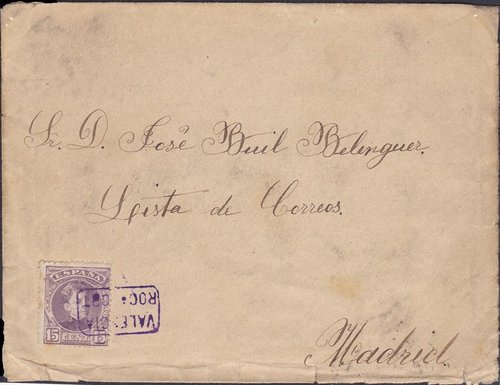 Sr. D. José Buil Belenguer.
Lista de Correos.
Madrid.
ESPAÑA
15 CENT. 15
VALENCIA